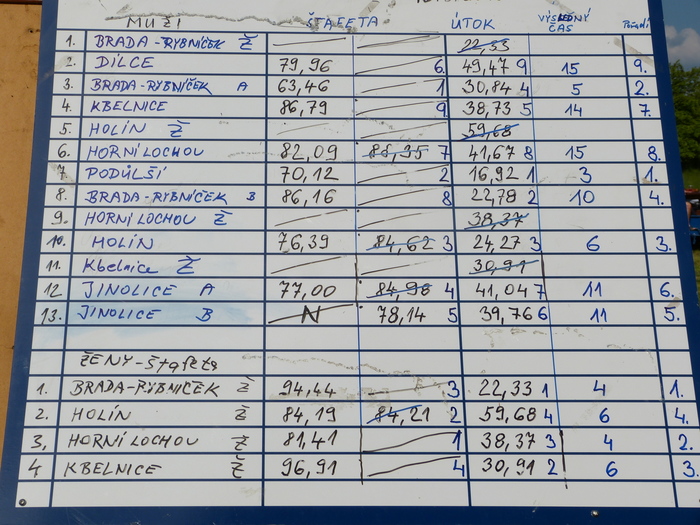 MUŽI ŠTAFETA ÚTOK VÝSLEDNÝ ČAS Pořadí
1. BRADA-RYBNÍČEK Ž 22,33
2. DÍLCE 79,96 6. 49,47 9 15 9.
3. BRADA-RYBNÍČEK A 63,46 1 30,84 4 5 2.
4. KBELNICE 86,79 9. 38,73 5 14 7.
5. HOLÍN Ž 59,68
6. HORNÍ LOCHOU 82,09 86,35 7 41,67 8 15 8.
7. PODŮLŠÍ 70,12 2 16,92 1 3 1.
8. BRADA-RYBNÍČEK B 86,16 8 22,78 2 10 4.
9. HORNÍ LOCHOU Ž 38,37
10. HOLÍN 76,39 84,62 3 24,27 3 6 3.
11. Kbelnice Ž 30,91
12 JINOLICE A 77,00 84,98 4 41,04 7 11 6.
13. JINOLICE B N 78,14 5 39,76 6 11 5.
ŽENY-štafeta
1. BRADA-RYBNÍČEK Ž 94,44 3 22,33 1 4 1.
2. HOLÍN Ž 84,19 84,21 2 59,68 4 6 4.
3, HORNÍ LOCHOU Ž 81,41 1 38,37 3 4 2.
4 KBELNICE Ž 96,91 4 30,91 2 6 3.